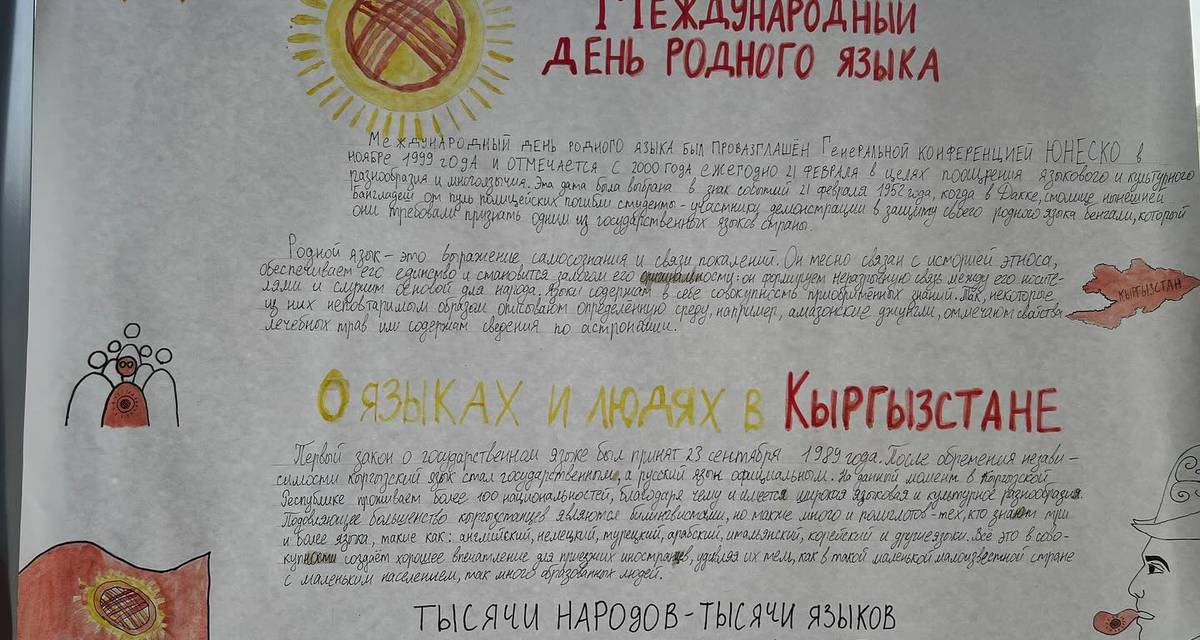 Международный
день родного языка
Международный день родного языка был провазглашен Генеральной конференцией ЮНЕСКО в
ноябре 1999 года и отмечается с 2000 года ежегодно 21 февраля в целях поощрения языкового и культурного
разнообразия и многоязычия. Эта дата была выбрана в знак событий 21 февраля 1952 года, когда в Дакке, столице нынешней
Бангладеш от пуль полицейских погибли студенты - участники демонстрации в защиту своего родного языка бенгали, который
они требовали признать одним из государственных языков страны.
Родной язык - это выражение самосознания и связи покалений. Он тесно связан с историей этноса,
обеспечивает его единство и становится залогом его оригинальности: он формирует неразрывную связь между его носите-
лями и служит основой для народа. Языки содержат в себе совокупность приобретённых знаний. Так, некоторые
из них неповторимым образом описывают определённую среду, например, амазонские джунгли, отмечают свойства
лечебных трав или содержат сведения по астрономии.
КЫРГЫЗСТАН
О языках и людях в Кыргызстане
Первый закон о государственном языке был принят 23 сентября 1989 года. После обретения незави-
симости кыргызский язык стал государственным, а русский язык официальным. На данный момент в Кыргызской
Республике проживает более 100 национальностей, благодаря чему и имеется широкая языковая и культурное разнообразия.
Подовляющее большенство кыргызстанцев являются билингвистами, но также много и полиглотов - тех, кто знают три
и более языка, такие как: английский, немецкий, турецкий, арабский, итальянский, корейский и другие языки. Всё это в сово-
купности создаёт хорошее впечатление для приезжих иностранцев, удивляя их тем, как в такой маленькой малоизвестной стране
с маленьким населением, так много образованных людей.
Тысячи народов - тысячи языков